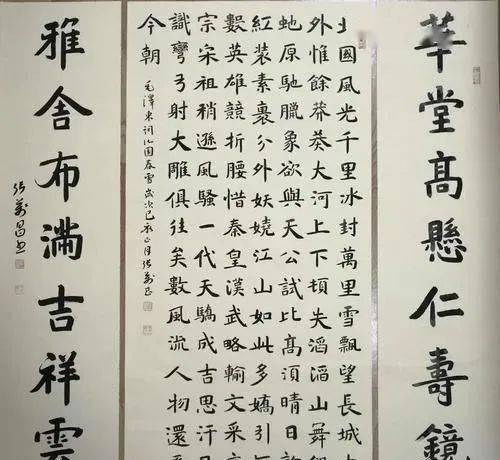 華堂高懸仁壽鏡
北國風光千里冰封萬里雪飄望長城
外惟餘莽莽大河上下頓失滔滔山舞
虵原馳臘象欲與天公試比高須晴日
紅裝素裹分外妖嬈江山如此多嬌引
數英雄競折腰惜秦皇漢武略輸文采
宗宋祖稍遜風騷一代天驕成吉思汗
識彎弓射大雕俱往矣數風流人物還
今朝
毛澤東詞沁園春雪歲次己
雅舍布滿吉祥雲
張萬昌書